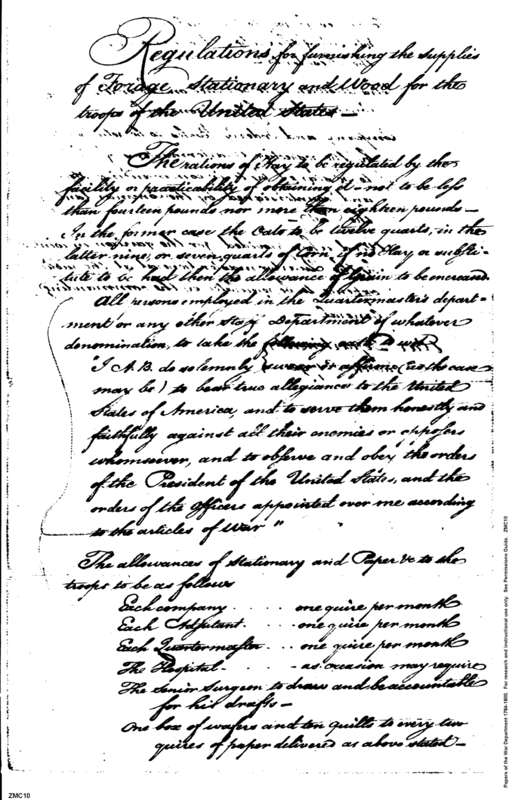 Regulations for furnishing the supplies
of Forage Stationary and Wood for the
troops of the United States —
The rations of Hay to be regulated by the
facility or practicability of obtaining it — not to be less
than fourteen pounds nor more than eighteen pounds —
In the former case the Oats to be twelve quarts, in the
latter nine, or seven quarts of Corn, if no Hay or substi-
tute to be had then the allowance of Grain to be increased
All persons employed in the Quartermasters depart-
ment or any other Staff Department of whatever
denomination, to take the following oath to wit
"I A.B. do solemnly swear or affirm (as the case
may be) to bear true allegiance to the United
States of America, and to serve them honestly and
faithfully against all their enemies or opposers
whomsoever, and to observe and obey the orders
of the President of the United States, and the
orders of the officers appointed over me according
to the articles of War"
The allowances of Stationary and Paper &c to the
troops to be as follows
Each company . . . . one quire per month
Each Adjutant . . . . one quire per month
Each Quartermaster . . one quire per month
The Hospital . . . . . as occasion may require
The Senior Surgeon to draw and be accountable
for his drafts —
One box of wafers and ten quills to every two
quires of paper delivered as above stated —
ZMC10
Papers of the War Department 1784-1800. For research and instructional use only. See Permissions Guide. ZMC10